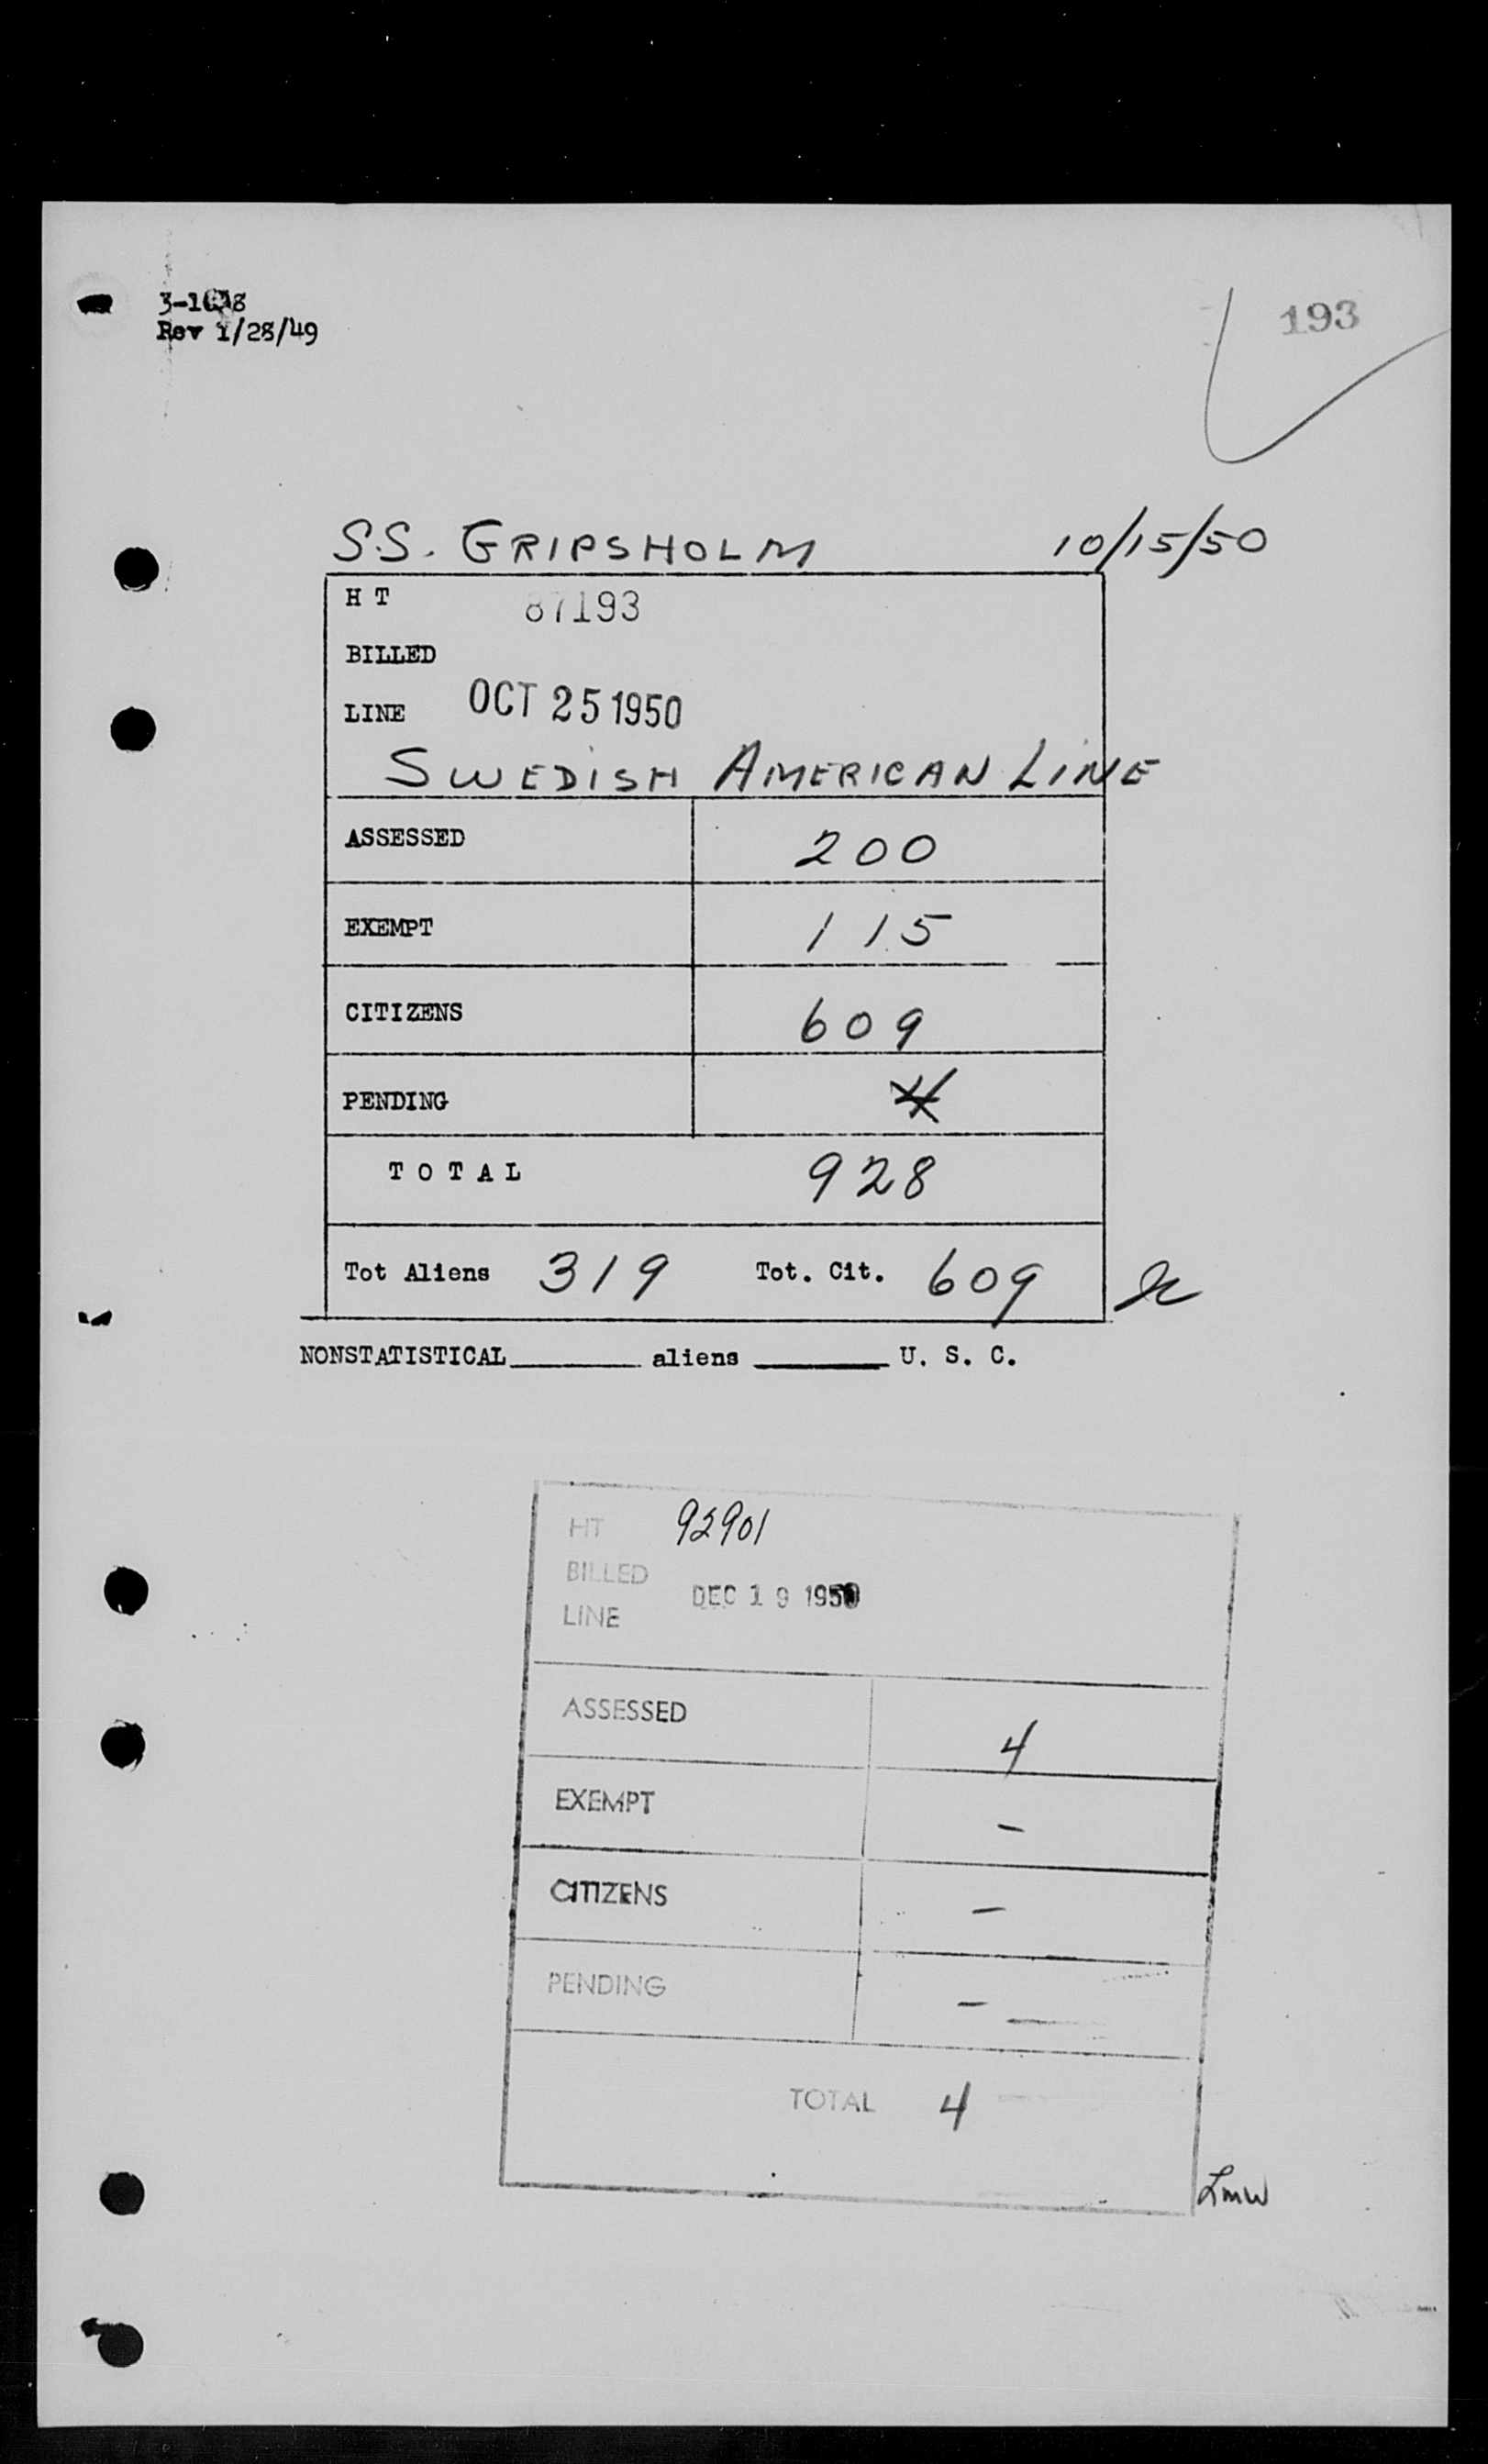 193
Rev 1/28/49
S.S. GRIPSHOLM 10/15/50
H T 87193
BILLED
LINE OCT 25 1950
SWEDISH AMERICAN LINE
ASSESSED 200
EXEMPT 115
CITIZENS 609
PENDING 4
T O T A L 928
Tot Aliens 319 Tot. Cit. 609
NONSTATISTICAL______ aliens ______ U. S. C.
HT 92901
BILLED
DEC 19 1950
LINE
ASSESSED 4
EXEMPT -
CITIZENS -
PENDING -
TOTAL 4
Lmw